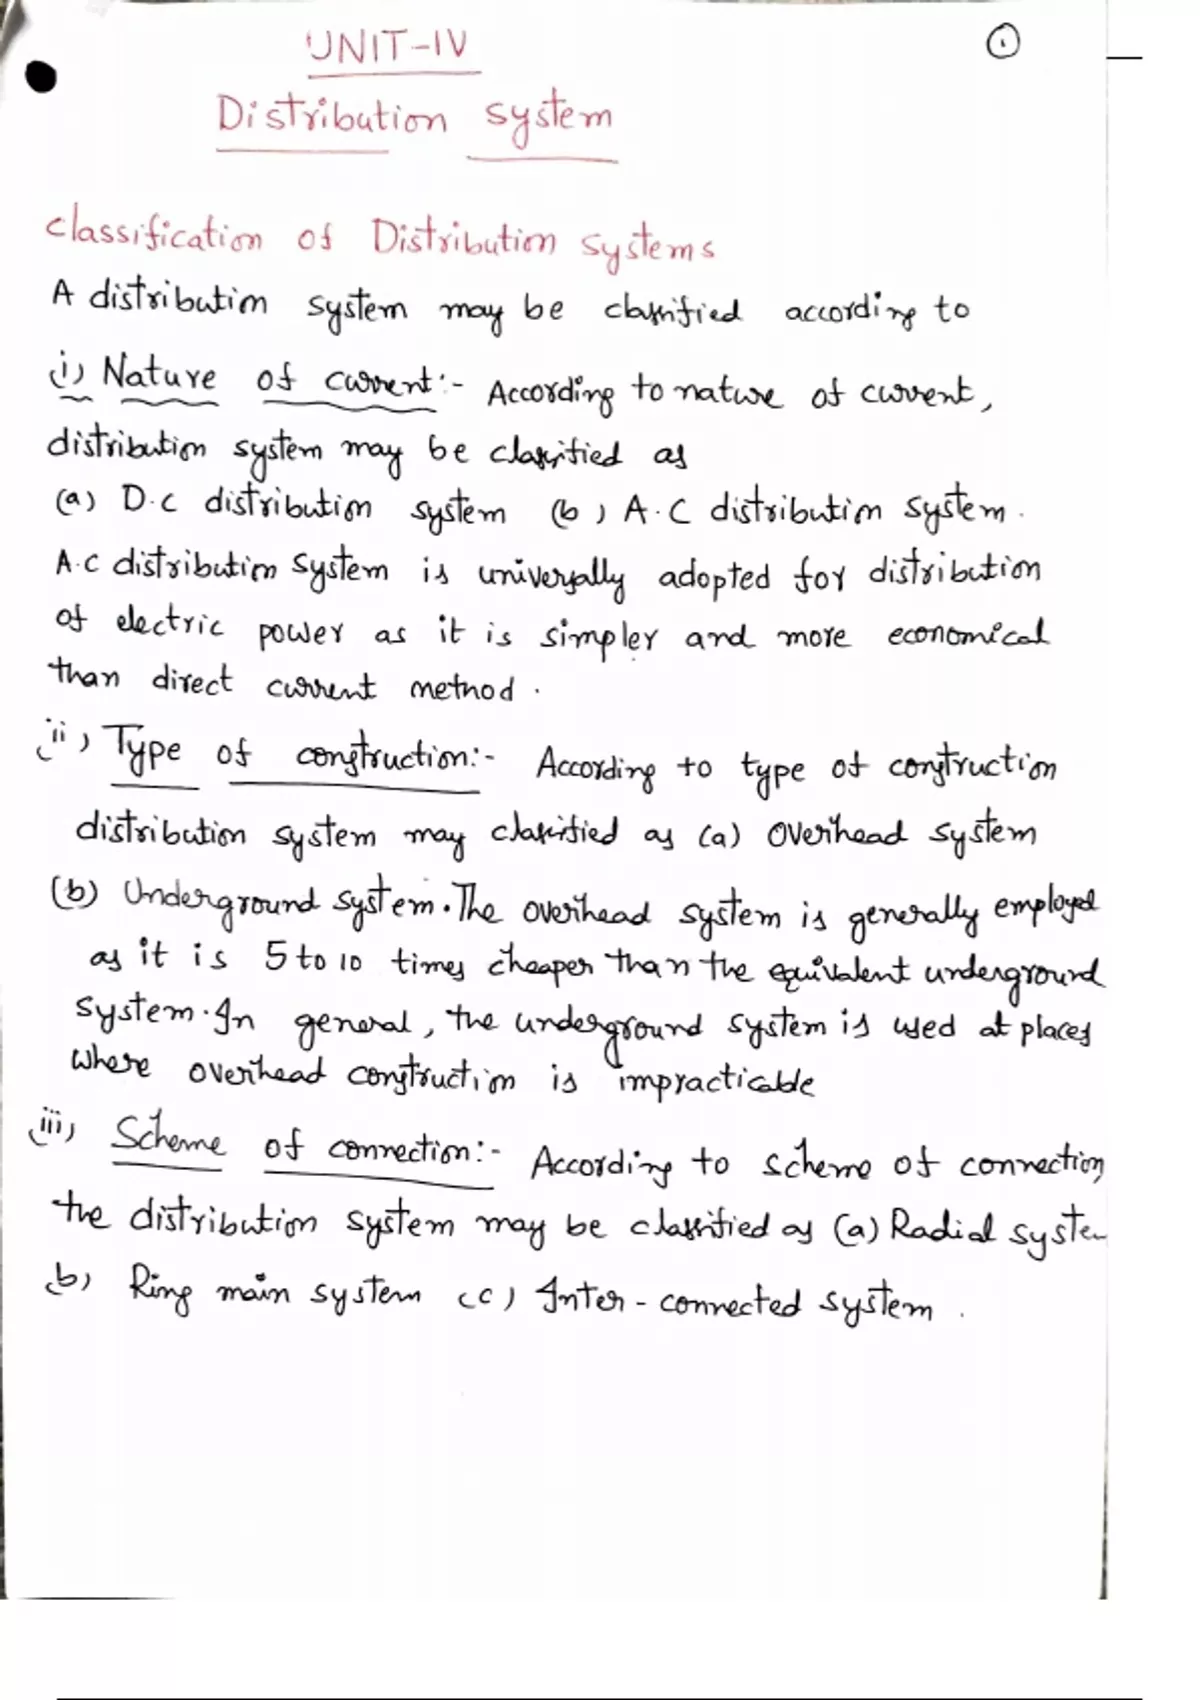 ①
UNIT-IV
Distribution system
classification of Distribution systems
A distribution system may be classified according to
(i) Nature of current:- According to nature of current,
distribution system may be classified as
(a) D.C distribution system (b) A.C distribution system.
A.C distribution system is universally adopted for distribution
of electric power as it is simpler and more economical
than direct current method.
(ii) Type of construction:- According to type of construction
distribution system may classified as (a) Overhead system
(b) Underground system. The overhead system is generally employed
as it is 5 to 10 times cheaper than the equivalent underground
system. In general, the underground system is used at places
where overhead construction is impracticable
(iii) Scheme of connection:- According to scheme of connection,
the distribution system may be classified as (a) Radial system
(b) Ring main system (c) Inter-connected system.